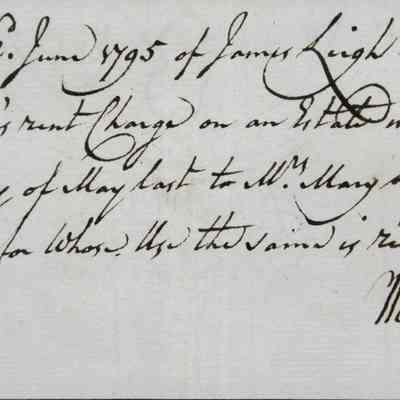 June 1795 of James Leigh
's rent Charge on an Estate
of May last to Mrs. Mary
for Whose Use the same is